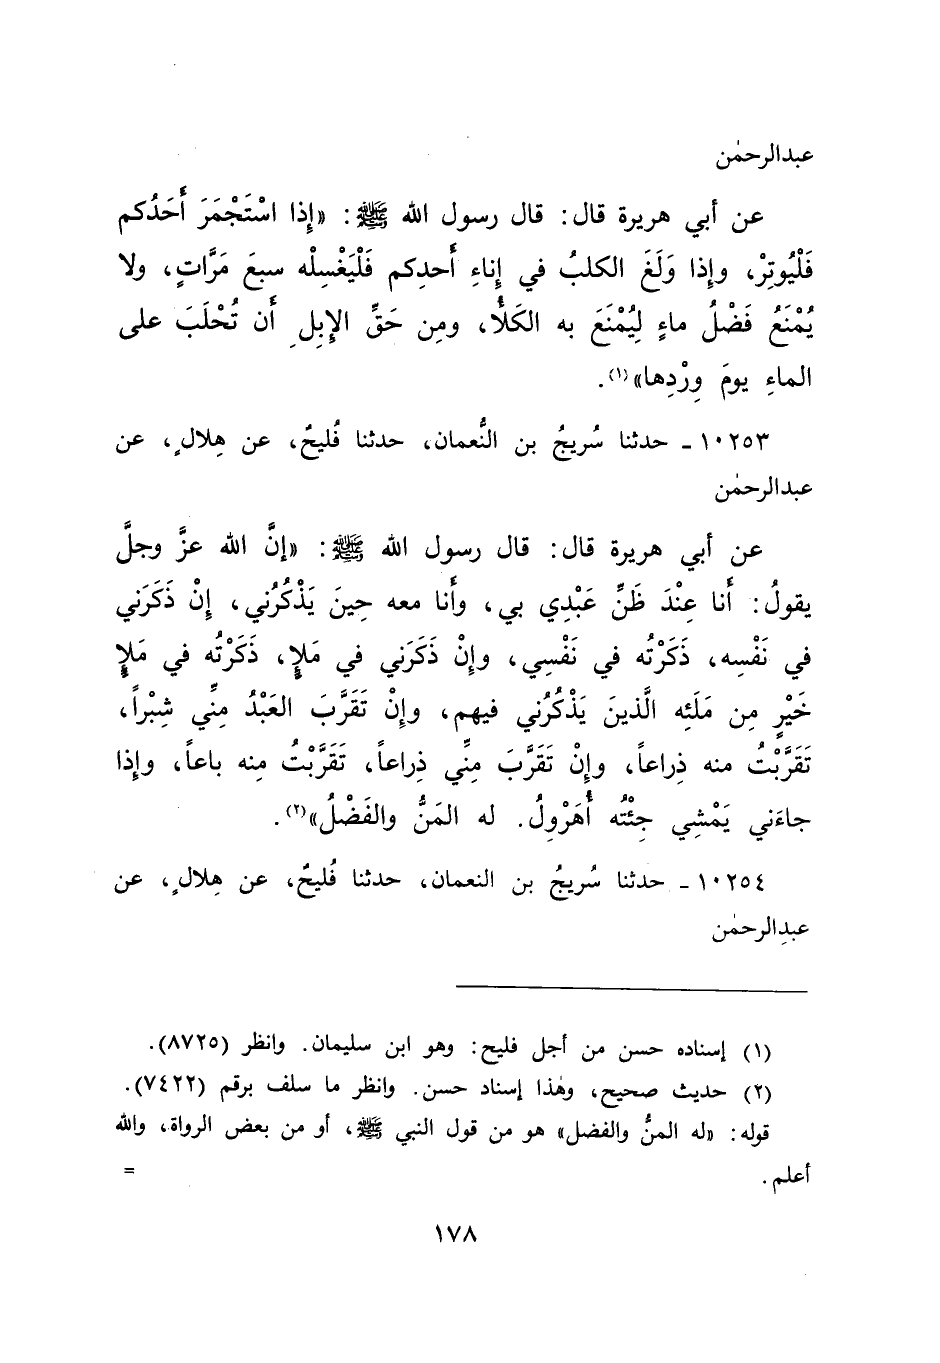 عبدالرحمٰن
عن أبي هريرة قال: قال رسول الله ﷺ: «إِذا اسْتَجْمَرَ أَحَدُكم
فَلْيُوتِرْ، وإِذا وَلَغَ الكلبُ في إِناءِ أَحدِكم فَلْيَغْسِلْه سبعَ مَرَّاتٍ، ولا
يُمْنَعُ فَضْلُ ماءٍ لِيُمْنَعَ به الكَلَأُ، ومِن حَقِّ الإِبِلِ أَن تُحْلَبَ على
الماءِ يومَ وِرْدِها»(١).
١٠٢٥٣ ـ حدثنا سُريجُ بن النُّعمان، حدثنا فُليحٌ، عن هِلالٍ، عن
عبدالرحمٰن
عن أبي هريرة قال: قال رسول الله ﷺ: «إنَّ الله عزَّ وجلَّ
يقولُ: أَنا عِنْدَ ظَنِّ عَبْدِي بي، وأَنا معه حِينَ يَذْكُرُني، إِنْ ذَكَرَني
في نَفْسِه، ذَكَرْتُه في نَفْسِي، وإِنْ ذَكَرَني في مَلإٍ، ذَكَرْتُه في مَلإٍ
خَيْرٍ مِن مَلَئِه الَّذينَ يَذْكُرُني فيهم، وإِنْ تَقَرَّبَ العَبْدُ مِنِّي شِبْراً،
تَقَرَّبْتُ منه ذِراعاً، وإِنْ تَقَرَّبَ مِنِّي ذِراعاً، تَقَرَّبْتُ مِنه باعاً، وإِذا
جاءَني يَمْشِي جِئْتُه أُهَرْوِلُ. له المَنُّ والفَضْلُ»(٢).
١٠٢٥٤ ـ حدثنا سُريجُ بن النعمان، حدثنا فُليحٌ، عن هِلالٍ، عن
عبدِالرحمٰن
(١) إسناده حسن من أجل فليح: وهو ابن سليمان. وانظر (٨٧٢٥).
(٢) حديث صحيح، وهٰذا إسناد حسن. وانظر ما سلف برقم (٧٤٢٢).
قوله: «له المنُّ والفضل» هو من قول النبي ﷺ، أو من بعض الرواة، والله
أعلم. =
١٧٨